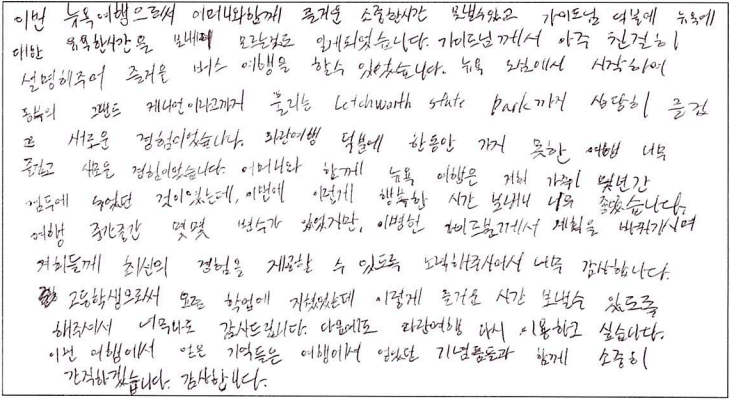 이번 뉴욕여행으로서 어머니와함께 즐거운 소중한시간 보낼수있었고 가이드님 덕분에 뉴욕에
대한 유익한시간을 보내며 모르는것도 알게되었습니다. 가이드님께서 아주 친절히
설명해주어 즐거운 버스 여행을 할수 있었습니다. 뉴욕 도심에서 시작하여
동부의 그랜드 캐니언이라고까지 불리는 Letchworth state park까지 상당히 즐겁
고 새로운 경험이었습니다. 파란여행 덕분에 한동안 가지 못한 여행 너무
즐겁고 새로운 경험이었습니다. 어머니와 함께 뉴욕 여행은 저희 가족이 몇년간
염두에 두었던 것이었는데, 이번에 이렇게 행복한 시간 보내니 너무 좋았습니다.
여행 중간중간 몇몇 변수가 있었지만, 이병헌 가이드님께서 계획을 바꿔가시며
저희들께 최선의 경험을 제공할 수 있도록 노력해주셔서 너무 감사합니다.
고등학생으로써 요즘 학업에 지쳤었는데 이렇게 즐거운 시간 보낼수 있도록
해주셔서 너무나도 감사드립니다. 다음에도 파란여행 다시 이용하고 싶습니다.
이번 여행에서 얻은 기억들은 여행에서 얻었던 기념품들과 함께 소중히
간직하겠습니다. 감사합니다.